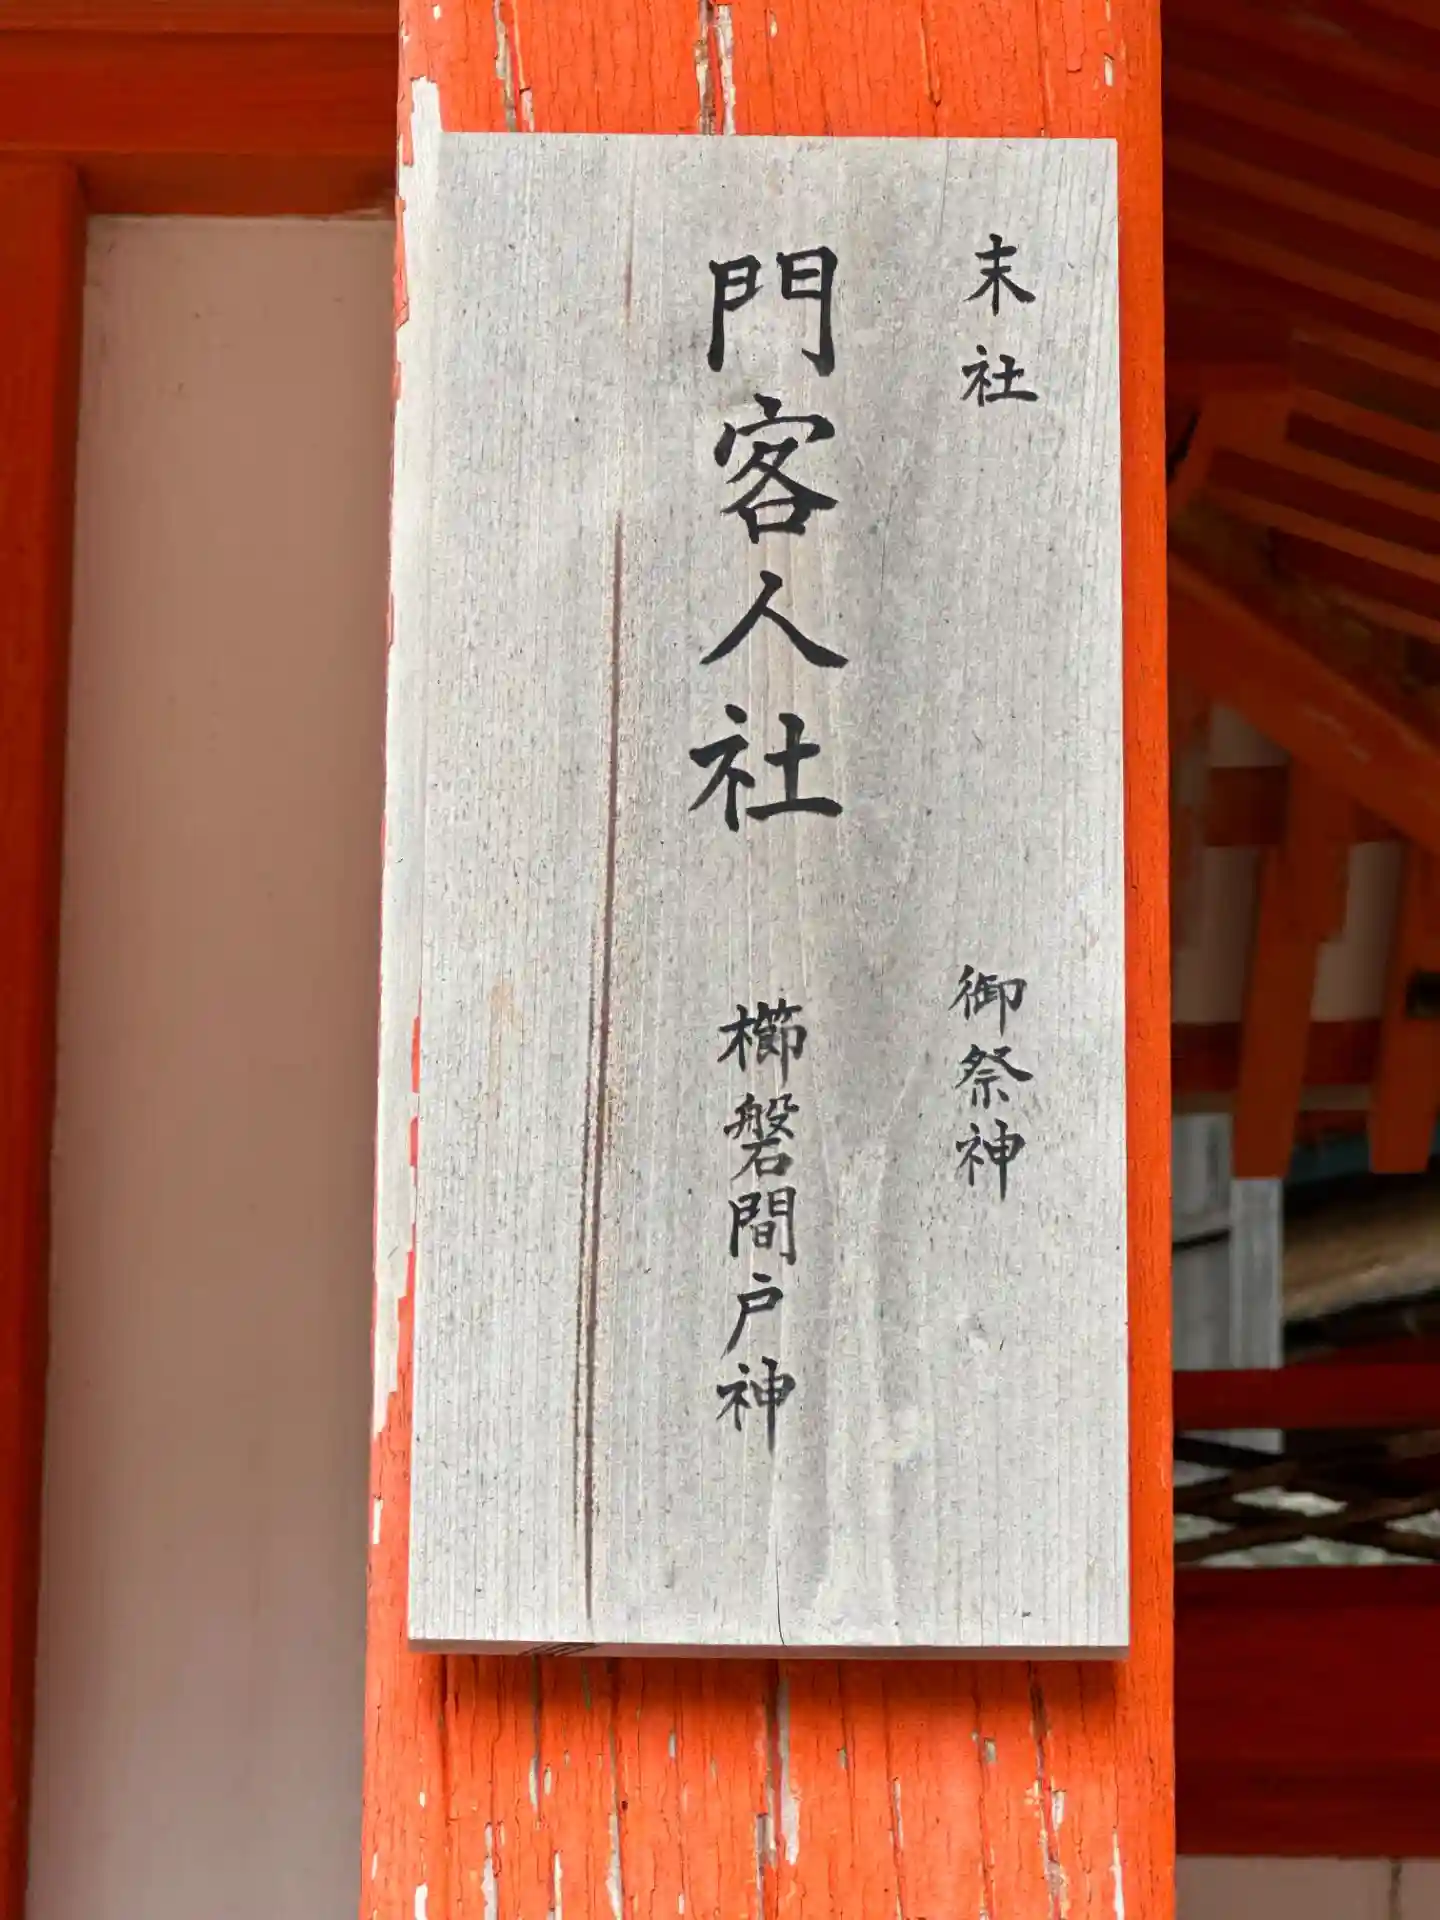 末社 御祭神
門客人社 櫛磐間戸神